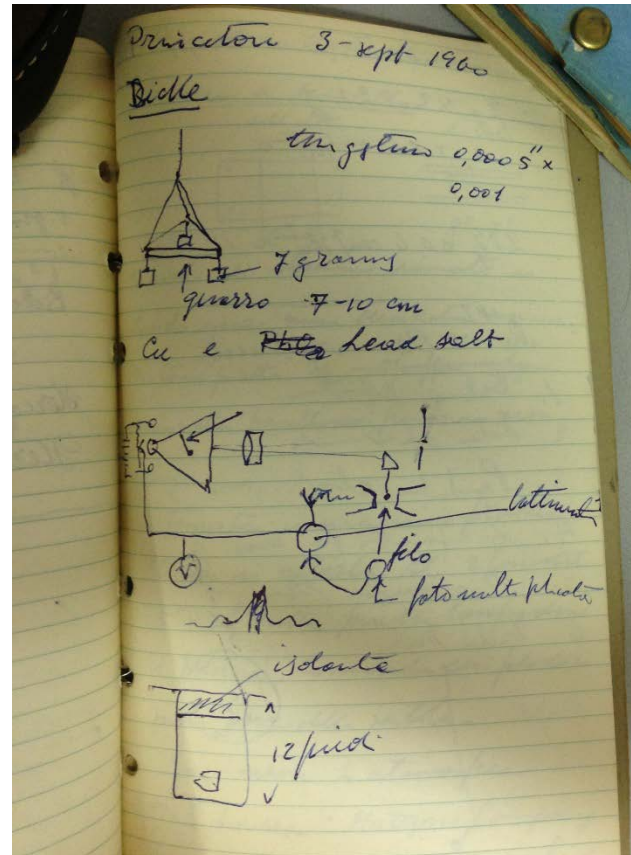 Princeton 3-sept 1960
Dicke
tungsteno 0,0005" x
0,001
7 grams
quarzo 7-10 cm
Cu e Lead salt
V
filo
fotomultiplicata
isolante
12 piedi